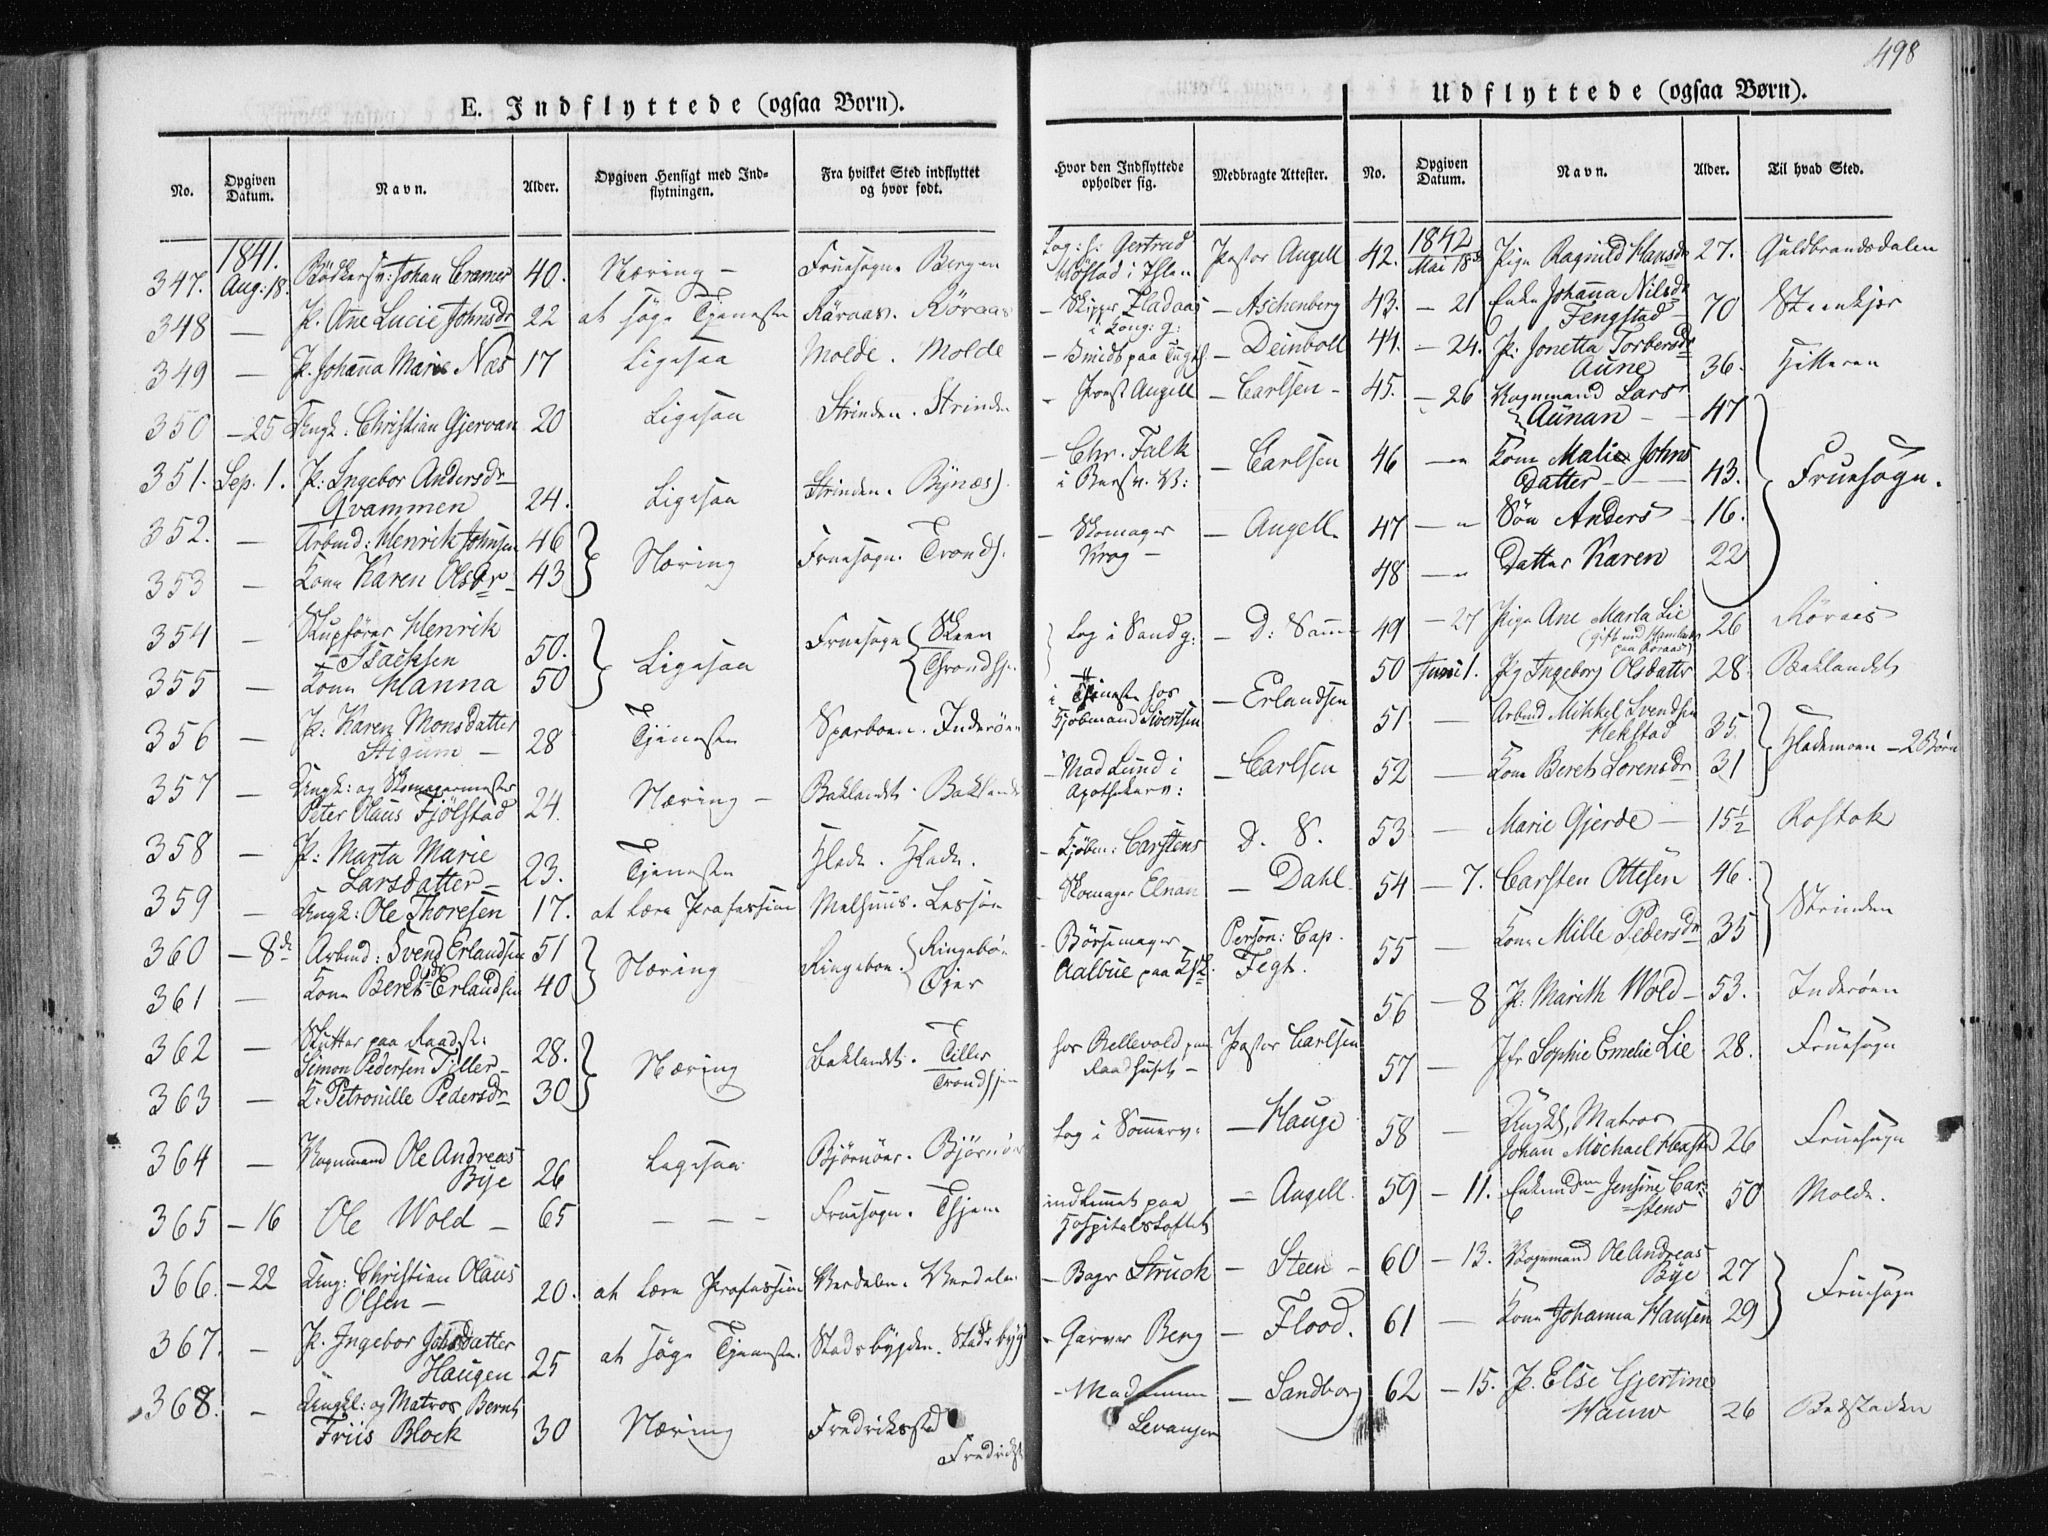 498
E. Indflyttede (ogsaa Born).
No. Opgiven Datum. Navn. Alder. Opgiven Hensigt med Indflytningen. Fra hvilket Sted indflyttet og hvor født. Hvor den Indflyttede opholder sig. Medbragte Attester.
1841.
347. Aug: 18. Bödkersv: Johan Cramer 40. Næring - Fruesogn. Bergen Log: h: Gertrud Pastor Angell
348 — P. Ane Lucie Johnsdr 22 at söge Tjeneste Röraas. Röraas - Skipper i Kong: g: - Aschenberg
349 — P. Johana Marie Næs 17 Ligesaa Molde. Molde - Smeds paa - Deinboll
350 - 25 Ungk: Christian Gjervan 20 Ligesaa Strinden. Strinden - Provst Angell - Carlsen -
351. Sep. 1. P: Ingebor Andersdr
Qvammen 24. Ligesaa Strinden. Bynæs - Chr. Falk - Carlsen
352. — Arbmd: Henrik Johnsen 46 Næring Fruesogn. Trondh. - Skomager Krog - - Angell
353 — Kone Karen Olsdr 43
354 — Henrik
Isachsen 50. Ligesaa Fruesogn Skeen Log i Sandg: - D: Samme
355 — Kone Hanna 50 Trondhj.
356 — P: Karen Monsdatter
Stigum - 28 Tjeneste Sparboen. Inderöen i Tjeneste hos Kjøbmand Sivertsen - Erlandsen
357 — Ungk: og Skomagermester
Peter Olaus Fjölstad 24. Næring - Baklandet. Baklandet - Mad Lund i Apothekerv: - Carlsen
358 — P: Marta Marie
Larsdatter - 23. Tjeneste Hlade. Hlade. - Kjöbm: Carstens D. S.
359 — Ungk: Ole Thoresen 17. at lære Profession Melhuus. - Skomager Elnan - Dahl
360 - 8de Arbmd: Svend Erlandsen 51 Næring Ringeboe. Ringeboe - Börsemager Person: Cap.
361 — Kone Beret Erlandsen 40 Öjer Aalbue paa Fegt.
362 — paa Raadst:
Simon Pedersen Tiller - 28. Næring Baklandet. Tiller hos Rellevold paa Pastor Carlsen
363 — K. Petronille Pedersdr 30 Trondhjem Raadhuset -
364 — Vognmand Ole Andreas
Bye 26 Ligesaa Björnöer. Björnöer Log i Sommerv: - Hauge
365 - 16 Ole Wold - 65 - - - Fruesogn. Thjem indkommet paa Hospitalsloftet - Angell.
366. - 22 Ung: Christian Olaus
Olsen - 20. at lære Profession Verdalen. Verdalen - Bager Struck - Steen -
367. — P. Ingebor Johsdatter
Haugen 25 at söge Tjeneste. Stadsbygden. Stadsbygd - Garver Berg - Flood.
368. — Ungkl: og Matros Bernt
Friis Block 30 Næring Fredriksstad Fredrikst - Madamme Levanger - Sandborg
Udflyttede (ogsaa Børn).
No. Opgiven Datum. Navn. Alder. Til hvad Sted.
1842
42. Mai 18de Pige Ragnild Hansdr 27. Guldbrandsdalen
43. - 21 Enke Johana Nilsdr
Fengstad - 70 Steenkjer
44. - 24. P: Jonetta Torbersdr
Aune 36. Hitteren
45. - 26 Vognmand Lars
Aunan - 47 Fruesogn.
46 — " Kone Malie Johns
Datter - - 43.
47 — " Sön Anders - 16.
48 — " Datter Karen 22
49 - 27 Pige Ane Marta Lie 26 Röraas
(gift med
paa Röraas)
50 Juni 1. Pig Ingeborg Olsdatter 28. Baklandet
51 — Arbmd Mikkel Svendsen
Hekstad 35. Hlademoen - 2 Börn
52 — Kone Beret Lorensdr 31
53 — Marie Gjerde - 15½ Rostok
54 - 7. Carsten Ottesen 46. Strinden
55 — Kone Mille Pedersdr 35
56 - 8 P. Marith Wold - 53. Inderöen
57 — Jfr Sophie Emelie Lie 28. Fruesogn
58 — Ungkl, Matros
Johan Michael 26 Fruesogn
59 - 11. Jensine Car-
stens 50 Molde.
60 - 13. Vognmand Ole Andreas
Bye 27 Fruesogn
61 — Kone Johanna Hansen 29
62 - 15. P. Else Gjertine
Hauw 26 Beistaden